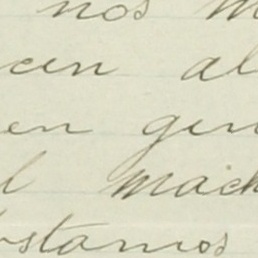 nos
cen al
en gen
l mach
stamos